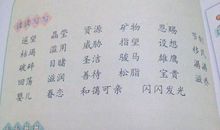 读读写写
遥望 晶莹 资源 矿物 恩赐 节制
枯竭 滥用 威胁 指望 设想
破碎 目睹 圣洁 骏马 雄鹰
回荡 滋润 善待 松脂 宝贵
婴儿 眷恋 和蔼可亲 闪闪发光